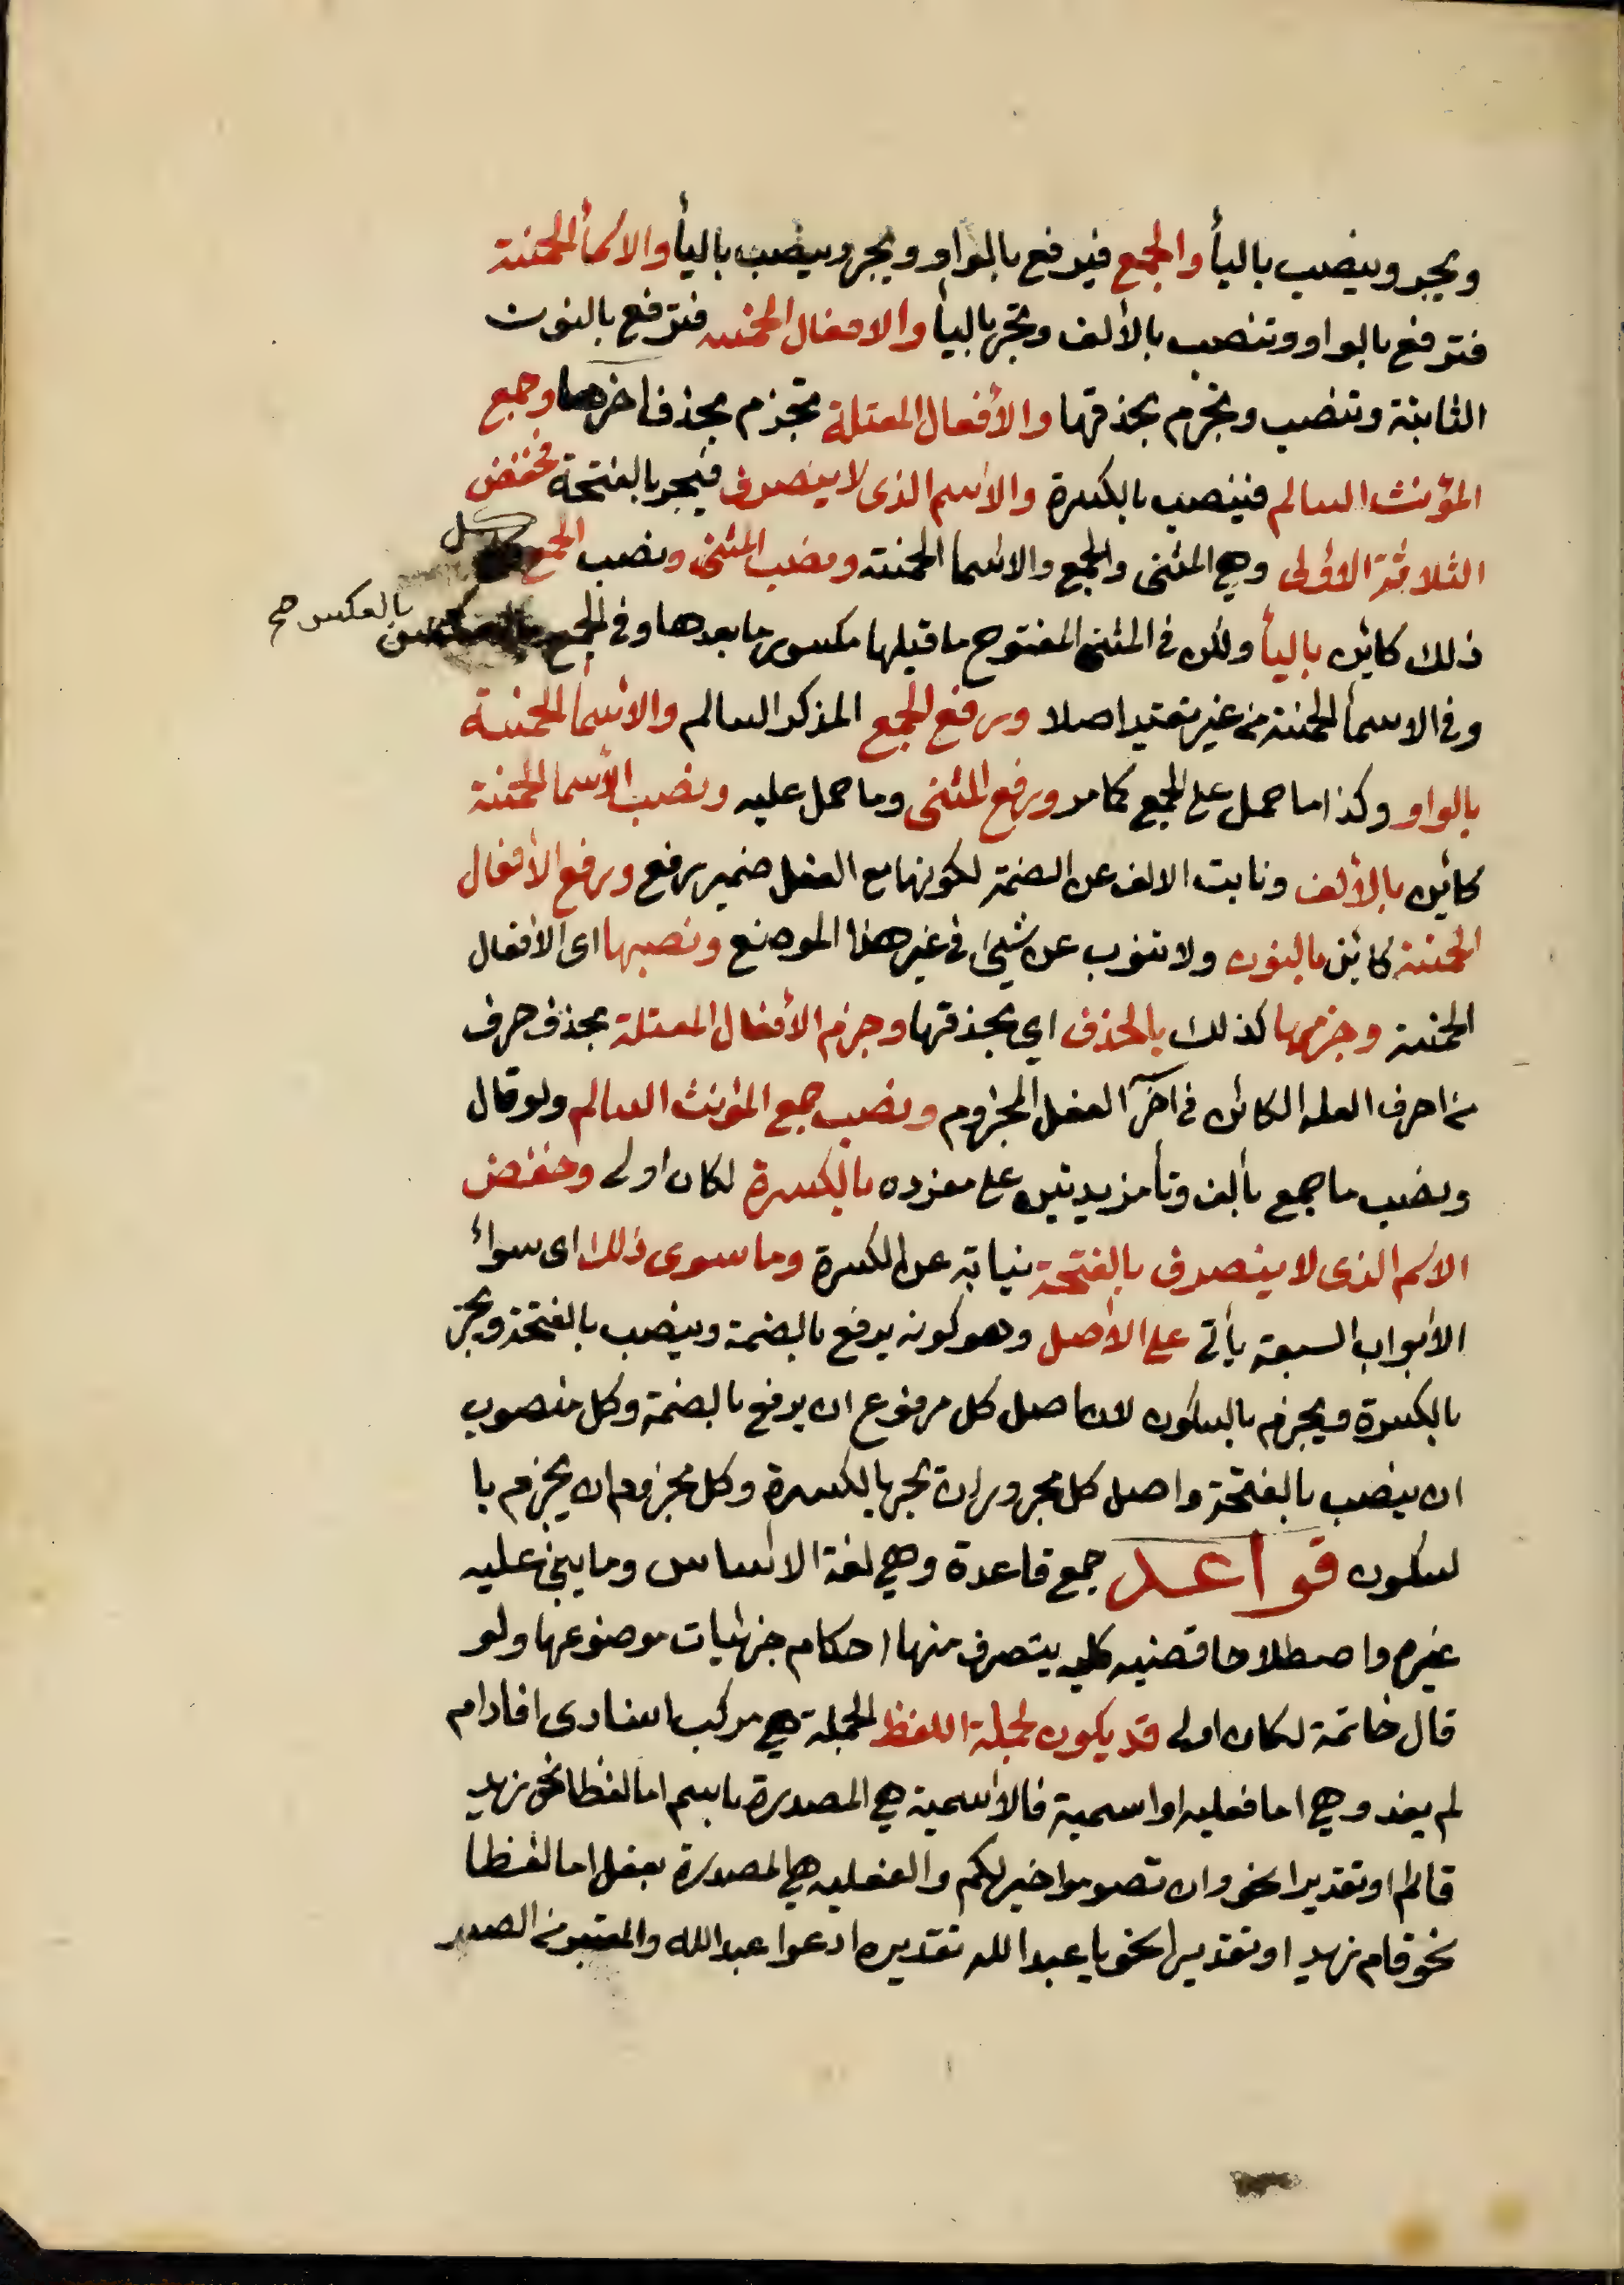 ويجر وينصب باليأ والجمع فيرفع بالواو ويجر وينصب باليأ والاسمأ الخمسة
فترفع بالواو وتنصب بالألف وتجر باليأ والافعال الخمسه فترفع بالنون
الثابتة وتنصب وتجزم بحذفها والأفعال المعتلة تجزم بحذف اخرها وجمع
المؤنث السالم فينصب بالكسرة والأسم الذى لا ينصرف فيجر بالفتحة فخفض
الثلاثة الاؤلى وهي المثنى والجمع والاسما الخمسة ونصب المثنى ونصب الجمع كل
ذلك كائن باليأ ولكن في المثنى المفتوح ما قبلها مكسور ما بعدها وفي الجمع بالعكس صح
وفي الاسمأ الخمسة من غير تقييد اصلا ورفع الجمع المذكر السالم والاسمأ الخمسة
بالواو وكذا ما حمل على الجمع كما مر ورفع المثنى وما حمل عليه ونصب الأسما الخمسة
كائن بالألف ونابت الالف عن الضمة لكونها مع الفعل ضمير رفع ورفع الأفعال
الخمسة كائن بالنون ولا تنوب عن شيئ في غير هذا الموضع ونصبها اى الأفعال
الخمسة وجزمها كذلك بالحذف اي بحذفها وجزم الأفعال المعتلة بحذف حرف
من احرف العله الكائن في آخر الفعل المجزوم ونصب جمع المؤنث السالم ولو قال
ونصب ما جمع بألف وتأ مزيدتين على مفرده بالكسرة لكان اولى وخفض
الاسم الذى لا ينصرف بالفتحة نيابة عن الكسرة وما سوى ذلك اى سوأ
الأبواب السبعة يأتي على الأصل وهو كونه يرفع بالضمة وينصب بالفتحة ويجر
بالكسرة ويجزم بالسكون لان اصل كل مرفوع ان يرفع بالضمة وكل منصوب
ان ينصب بالفتحة واصل كل مجرور ان يجر بالكسرة وكل مجزوم ان يجزم با
لسكون قواعد جمع قاعدة وهي لغة الاساس وما يبنى عليه
غيره واصطلاحا قضيه كليه يتصرف منها احكام جزئيات موضوعها ولو
قال خاتمة لكان اولى قد يكون لجملة اللفظ الجملة هي مركب اسنادى افاد ام
لم يفد وهي اما فعليه او اسمية فالاسمية هي المصدرة باسم اما لفظا نحو زيد
قائم او تقديرا نحو وان تصوموا خير لكم والفعليه هي المصدرة بفعل اما لفظا
نحو قام زيد او تقديرا نحو يا عبد الله تقديره ادعوا عبد الله والمعتبر من الصدر